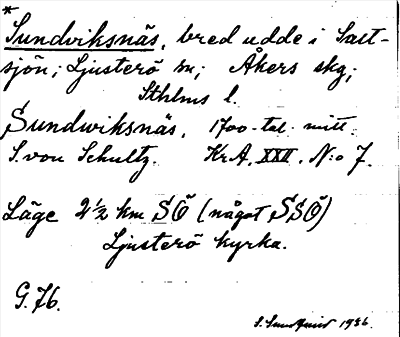 *
Sundviksnäs, bred udde i Salt-
sjön; Ljusterö sn; Åkers skg;
Sthlms l.
Sundwiksnäs, 1700-tal. mitt.
S. von Schultz. Kr.A. XXII, N:o 7.
Läge 2½ km SÖ (något SSÖ)
Ljusterö kyrka.
G. 76.
1936.